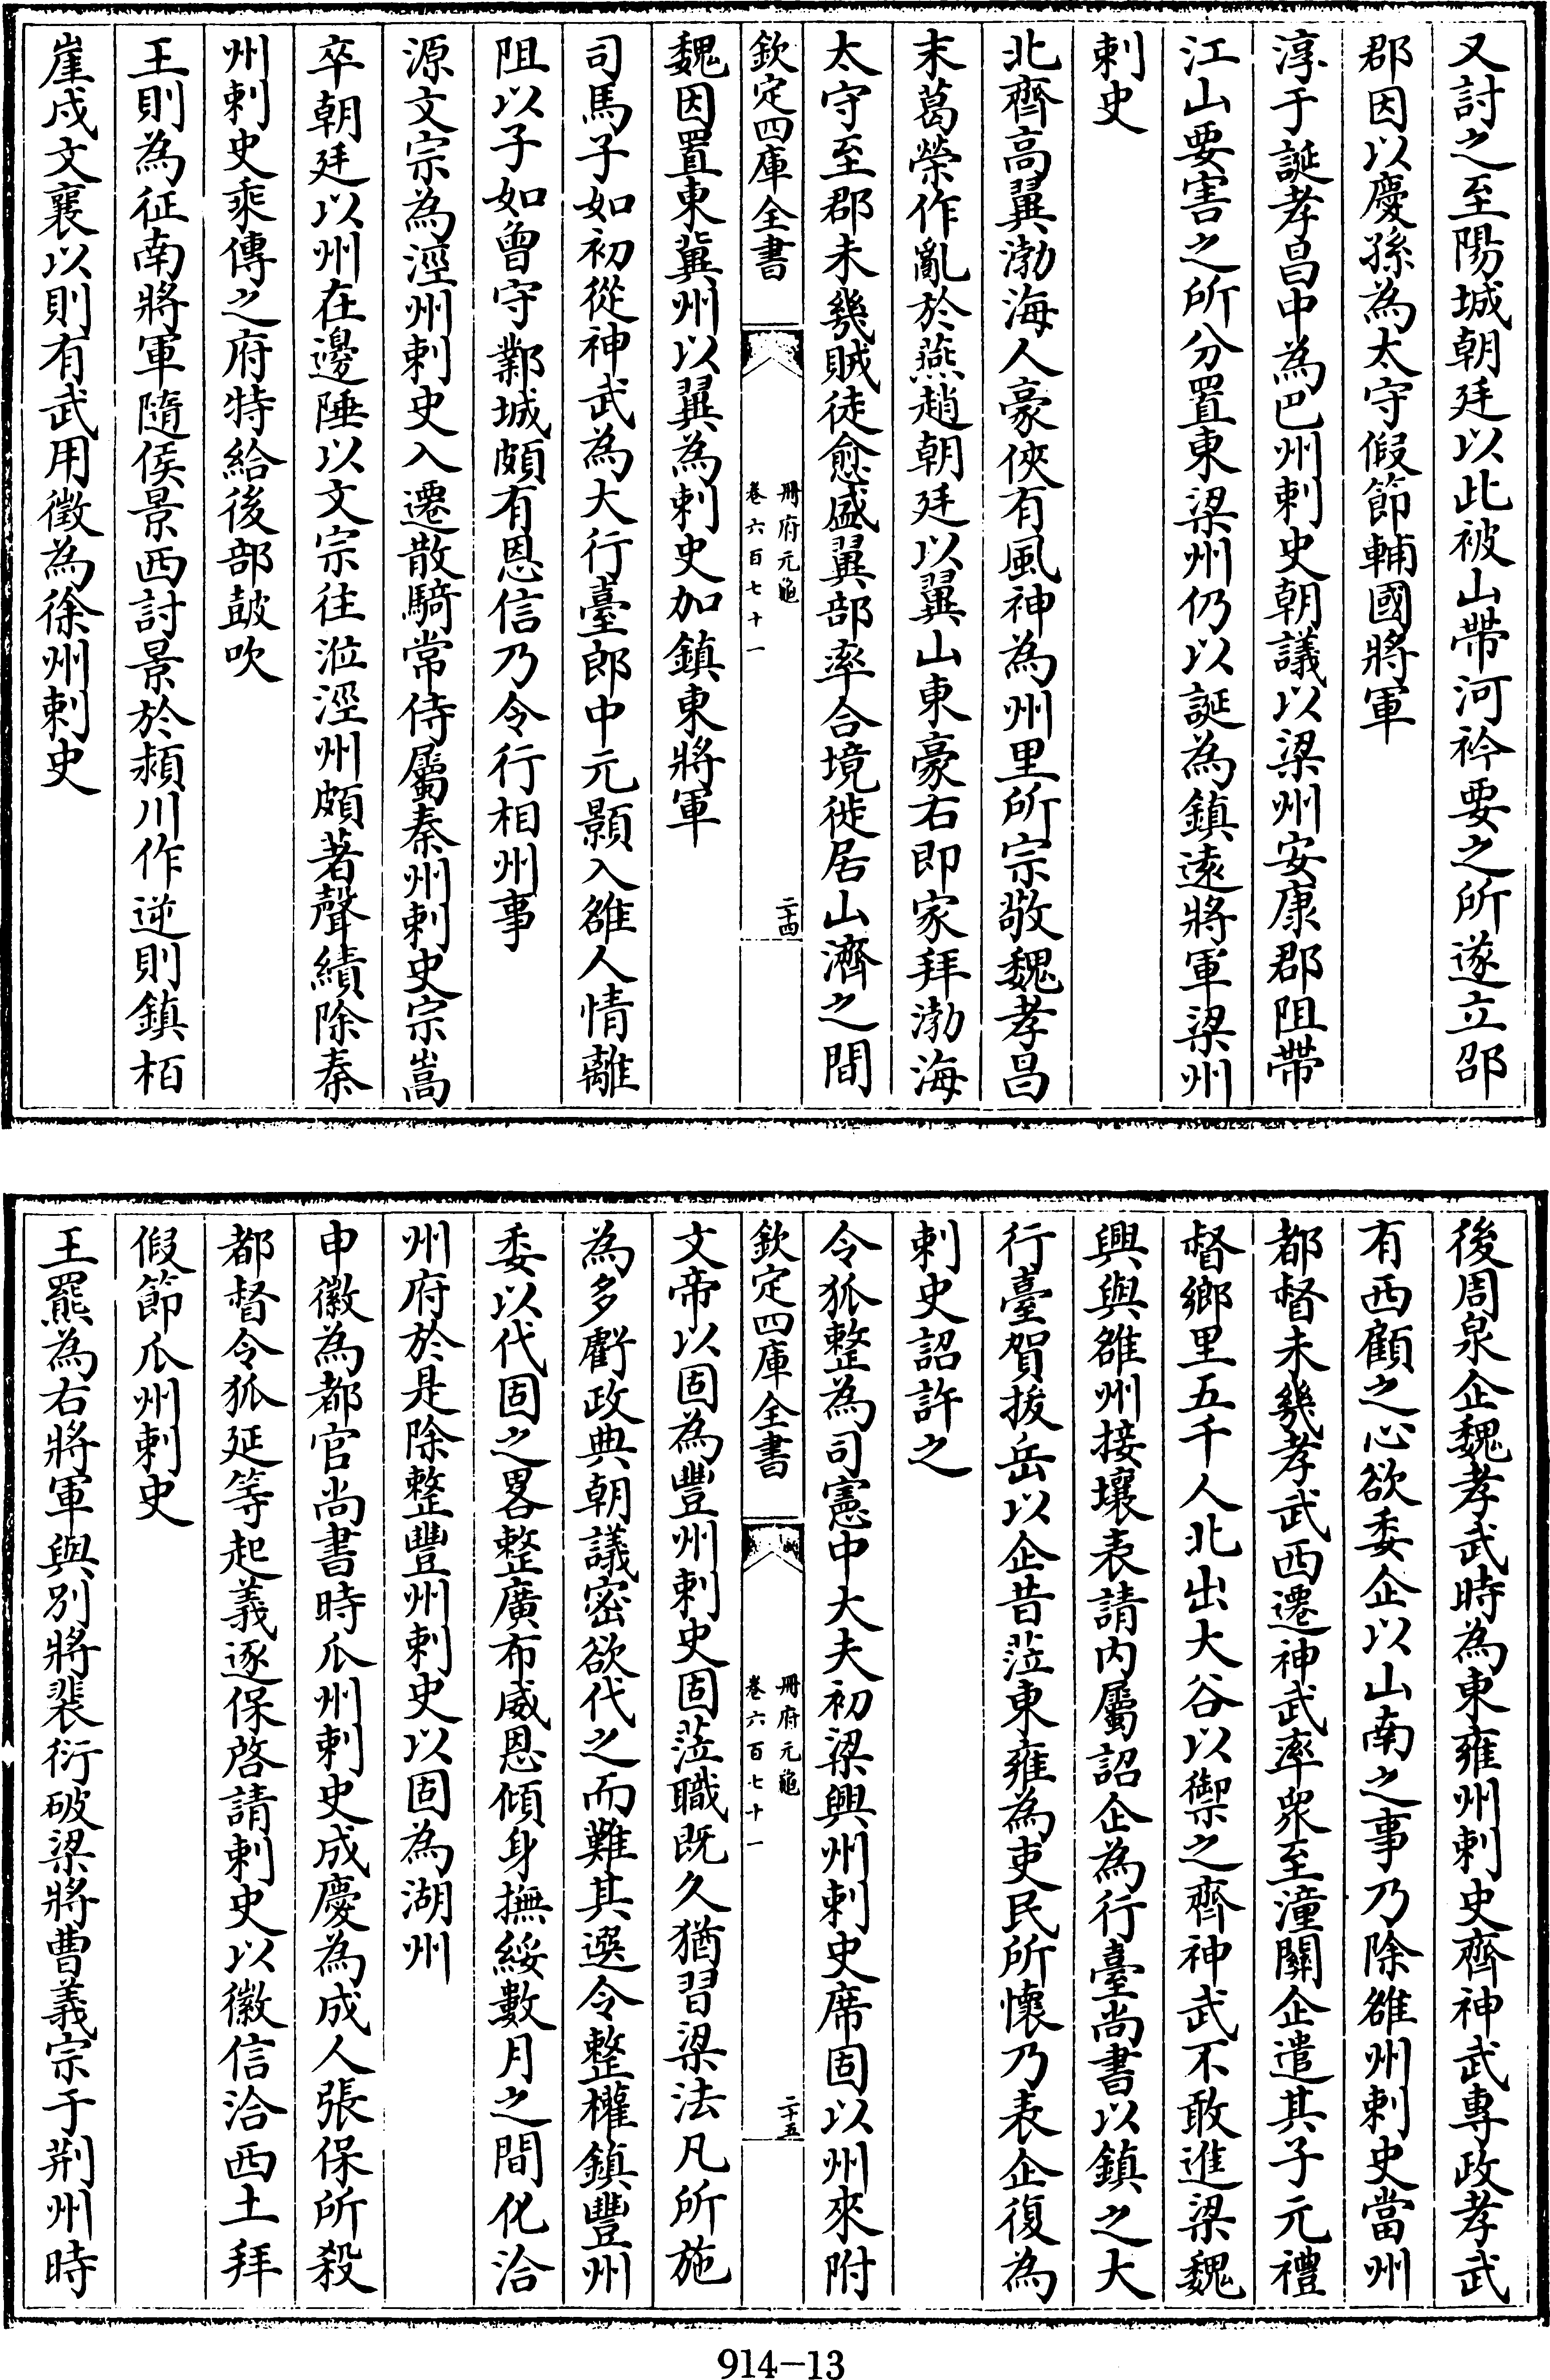 又討之至陽城朝廷以此被山帶河衿要之所遂立邵
郡因以慶孫為太守假節輔國將軍
淳于誕孝昌中為巴州刺史朝議以梁州安康郡阻帶
江山要害之所分置東梁州仍以誕為鎮遠將軍梁州
刺史
北齊高翼渤海人豪俠有風神為州里所宗敬魏孝昌
末葛榮作亂於燕趙朝廷以翼山東豪右即家拜渤海
太守至郡未幾賊徒愈盛翼部率合境徙居山濟之間
欽定四庫全書
冊府元龜
卷六百七十一
二十四
魏因置東冀州以翼為刺史加鎮東將軍
司馬子如初從神武為大行臺郎中元顥入雒人情離
阻以子如曾守鄴城頗有恩信乃令行相州事
源文宗為涇州刺史入遷散騎常侍屬秦州刺史宗嵩
卒朝廷以州在邊陲以文宗往涖涇州頗著聲績除秦
州刺史乘傳之府特給後部鼓吹
王則為征南將軍隨侯景西討景於潁川作逆則鎮栢
崖戍文襄以則有武用徵為徐州刺史
後周泉企魏孝武時為東雍州刺史齊神武專政孝武
有西顧之心欲委企以山南之事乃除雒州刺史當州
都督未幾孝武西遷神武率眾至潼關企遣其子元禮
督鄉里五千人北出大谷以禦之齊神武不敢進梁魏
興與雒州接壤表請内屬詔企為行臺尚書以鎮之大
行臺賀拔岳以企昔蒞東雍為吏民所懷乃表企復為
刺史詔許之
令狐整為司憲中大夫初梁興州刺史席固以州來附
欽定四庫全書
冊府元龜
卷六百七十一
二十五
文帝以固為豐州刺史固蒞職既久猶習梁法凡所施
為多虧政典朝議密欲代之而難其選令整權鎮豐州
委以代固之畧整廣布威恩傾身撫綏數月之間化洽
州府於是除整豐州刺史以固為湖州
申徽為都官尚書時瓜州刺史成慶為成人張保所殺
都督令狐延等起義逐保啓請刺史以徽信洽西土拜
假節瓜州刺史
王羆為右將軍與別將裴衍破梁將曹義宗于荆州時
914-13